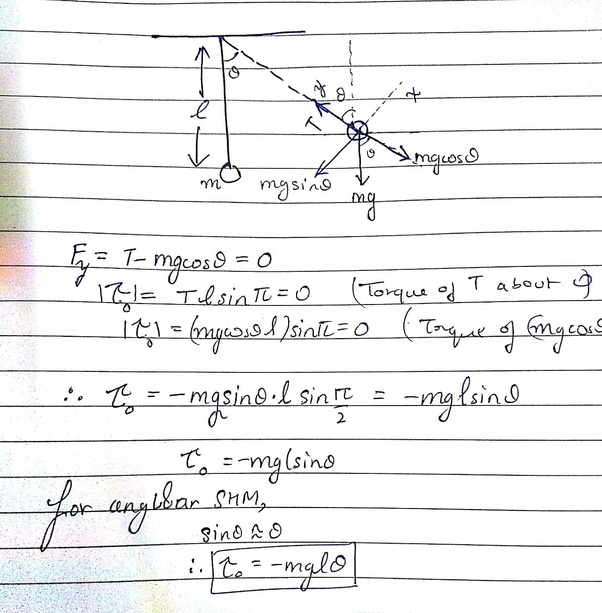 θ
l
m
y
θ
x
T
θ
mgcosθ
mgsinθ
mg
Fy = T - mgcosθ = 0
|τ₀| = Tl sin π = 0 (Torque of T about
|τ₀| = (mgcosθ l) sin π = 0 (Torque of (mgcosθ
∴ τ₀ = -mgsinθ·l sin π/2 = -mglsinθ
τ₀ = -mglsinθ
for angular SHM,
sinθ ≈ θ
∴ τ₀ = -mglθ